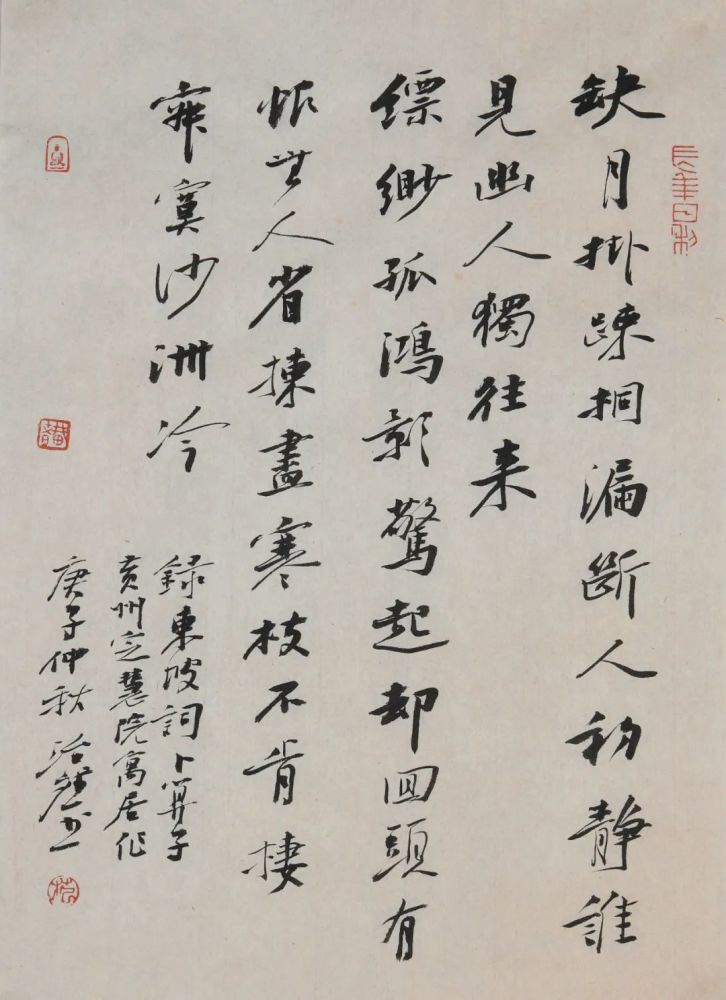 長年日利
缺月掛踈桐漏斷人初静誰
見幽人獨往来
縹緲孤鴻影驚起却囬頭有
恨無人省揀盡寒枝不肯棲
寂寞沙洲冷
録東坡詞卜算子
黄州定慧院寓居作
庚子仲秋